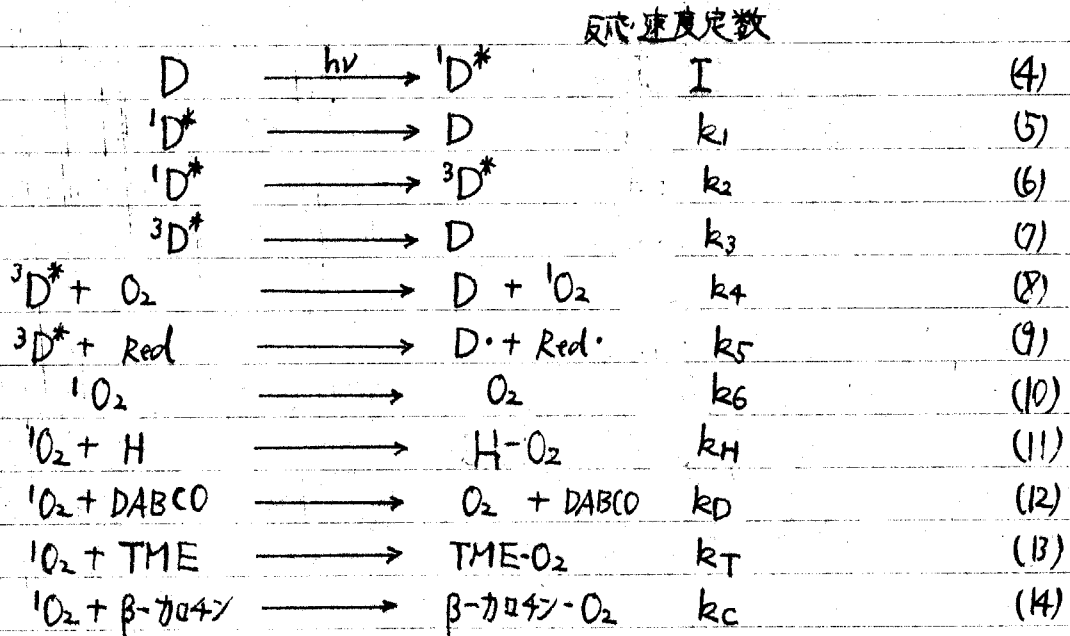 反応速度定数
D —hν→ ¹D* I (4)
¹D* → D k₁ (5)
¹D* → ³D* k₂ (6)
³D* → D k₃ (7)
³D* + O₂ → D + ¹O₂ k₄ (8)
³D* + Red → D· + Red· k₅ (9)
¹O₂ → O₂ k₆ (10)
¹O₂ + H → H-O₂ k_H (11)
¹O₂ + DABCO → O₂ + DABCO k_D (12)
¹O₂ + TME → TME-O₂ k_T (13)
¹O₂ + β-カロチン → β-カロチン-O₂ k_C (14)